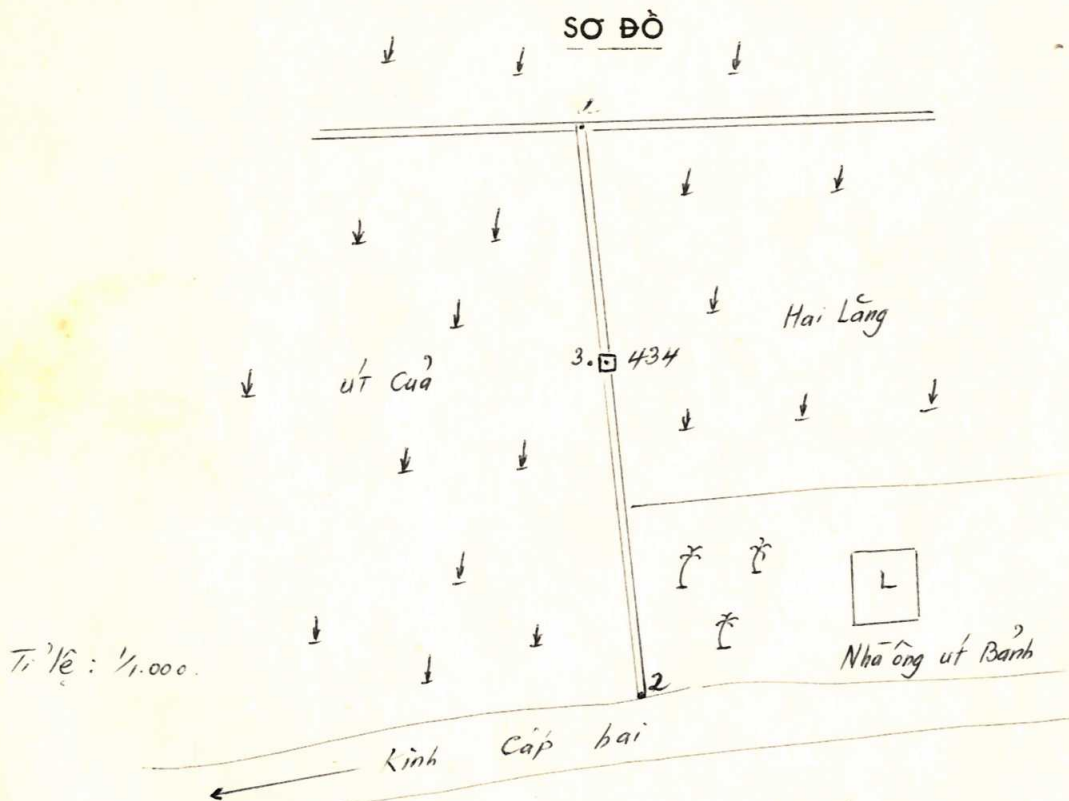 SƠ ĐỒ
1
Hai Lăng
3. 434
út Cuả
L
Nhà ông út Bảnh
2
Tỉ lệ : 1/1.000.
Kinh Cấp hai